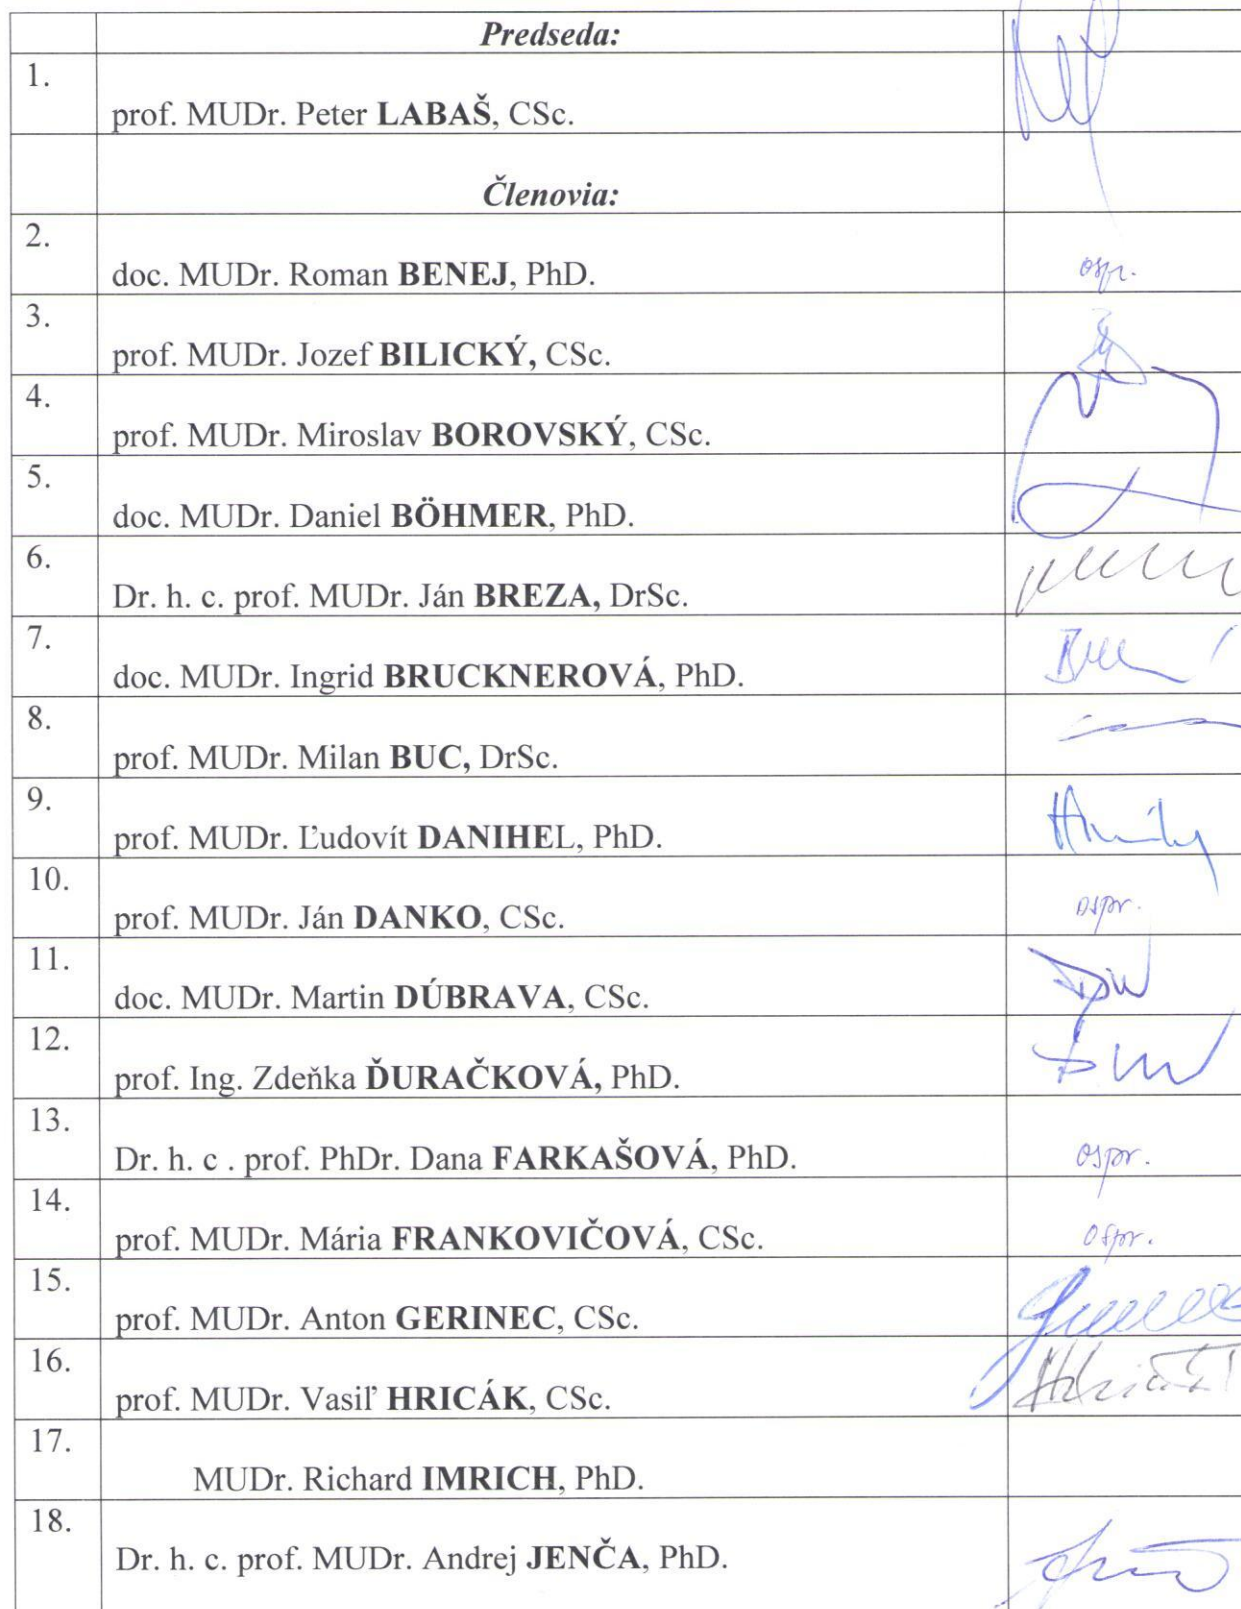 Predseda:
1.
prof. MUDr. Peter LABAŠ, CSc.
Členovia:
2.
doc. MUDr. Roman BENEJ, PhD. ospr.
3.
prof. MUDr. Jozef BILICKÝ, CSc.
4.
prof. MUDr. Miroslav BOROVSKÝ, CSc.
5.
doc. MUDr. Daniel BÖHMER, PhD.
6.
Dr. h. c. prof. MUDr. Ján BREZA, DrSc.
7.
doc. MUDr. Ingrid BRUCKNEROVÁ, PhD.
8.
prof. MUDr. Milan BUC, DrSc.
9.
prof. MUDr. Ľudovít DANIHEL, PhD.
10.
prof. MUDr. Ján DANKO, CSc. ospr.
11.
doc. MUDr. Martin DÚBRAVA, CSc.
12.
prof. Ing. Zdeňka ĎURAČKOVÁ, PhD.
13.
Dr. h. c . prof. PhDr. Dana FARKAŠOVÁ, PhD. ospr.
14.
prof. MUDr. Mária FRANKOVIČOVÁ, CSc. ospr.
15.
prof. MUDr. Anton GERINEC, CSc.
16.
prof. MUDr. Vasiľ HRICÁK, CSc.
17.
MUDr. Richard IMRICH, PhD.
18.
Dr. h. c. prof. MUDr. Andrej JENČA, PhD.